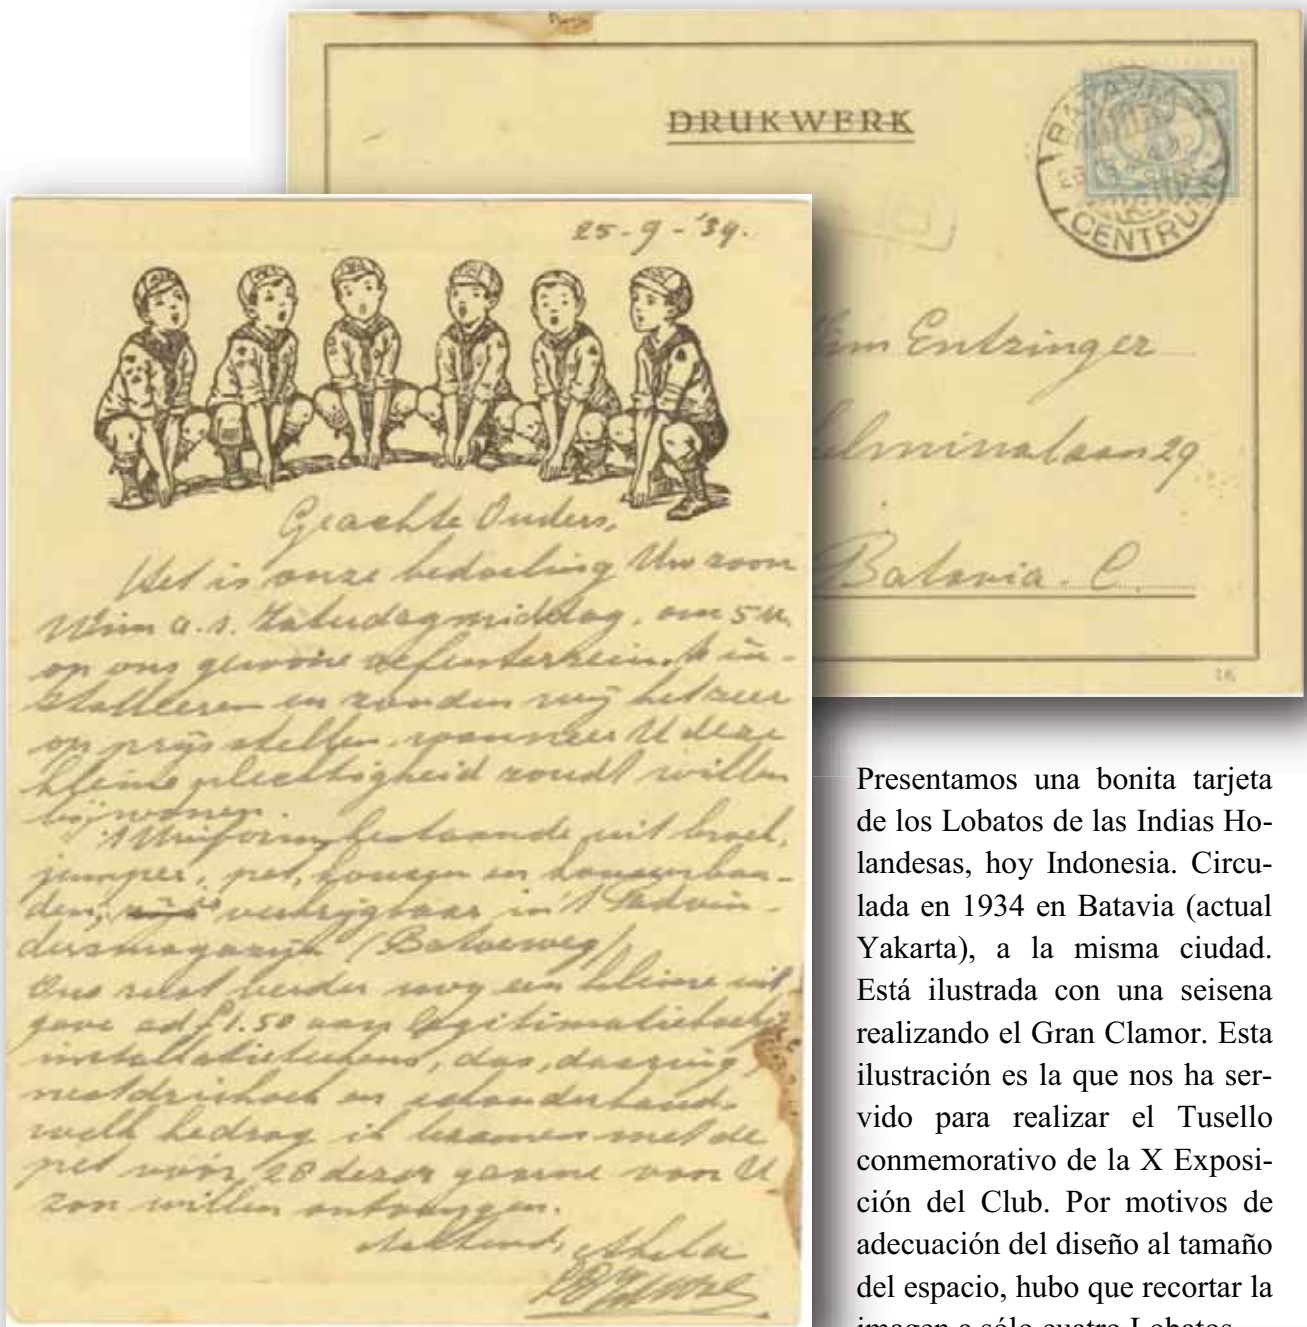 DRUKWERK
BATAVIA
CENTRUM
Wim Entzinger
Batavia. C.
26
25-9-'34.
Geachte Ouders,
Het is onze bedoeling Uw zoon
Wim a.s. Zaterdagmiddag, om 5 u.
op ons gewone oefenterrein te in-
stalleeren en zouden wij het zeer
op prijs stellen wanneer U deze
kleine plechtigheid zoudt willen
bijwonen.
't Uniform, bestaande uit broek,
jumper, pet, kousen en kousenban-
den, verkrijgbaar in 't Padvin-
dersmagazijn
Ons rest verder nog een kleine uit-
gave ad f 1.50 aan legitimatieboekje
installatieteeken, das, dasring,
nestdriehoek en schouderband.
welk bedrag ik tezamen met de
pet vóór 28 dezer gaarne van U
zou willen ontvangen.
Akela
Presentamos una bonita tarjeta
de los Lobatos de las Indias Ho-
landesas, hoy Indonesia. Circu-
lada en 1934 en Batavia (actual
Yakarta), a la misma ciudad.
Está ilustrada con una seisena
realizando el Gran Clamor. Esta
ilustración es la que nos ha ser-
vido para realizar el Tusello
conmemorativo de la X Exposi-
ción del Club. Por motivos de
adecuación del diseño al tamaño
del espacio, hubo que recortar la
imagen a sólo cuatro Lobatos